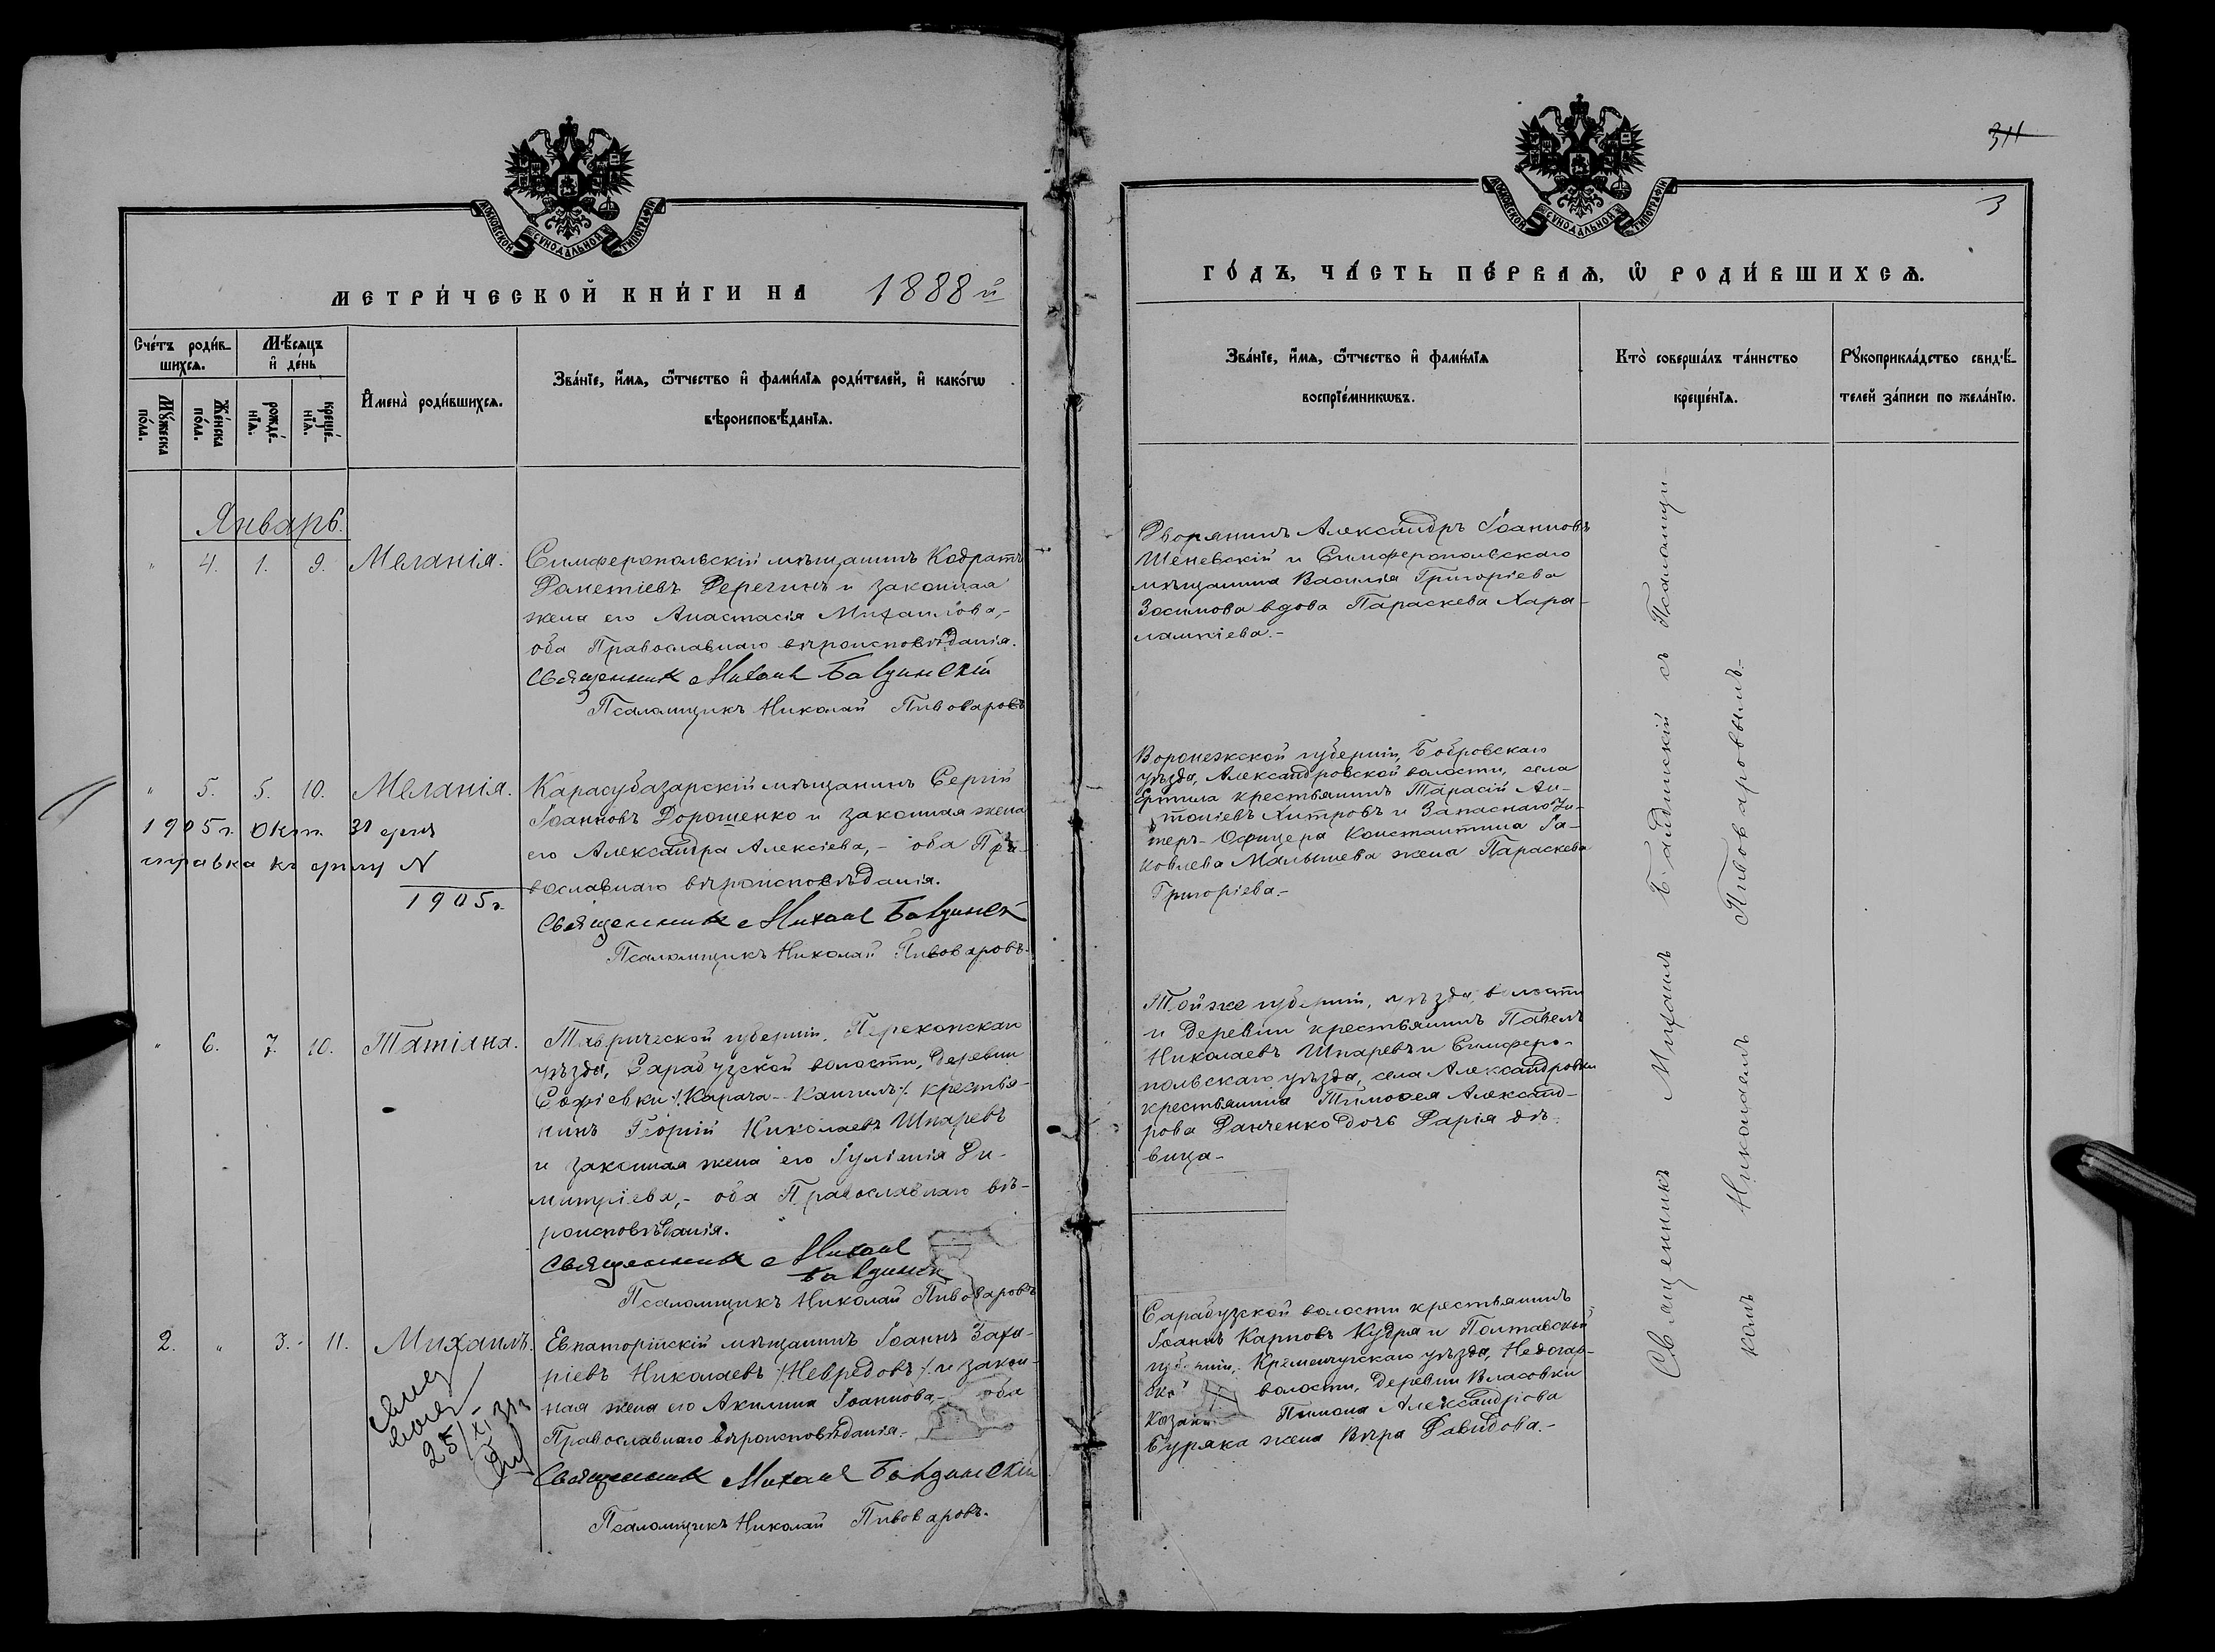 МОСКОВСКОЙ СУНОДАЛЬНОЙ ТИПОГРАФІИ
МЕТРИ́ЧЕСКОЙ КНИ́ГИ НА 1888 й
Сче́тъ роди́в-
шихсѧ.
Мѣ́сѧцъ
и҆ де́нь
Мꙋ́жеска
по́ла.
Же́нска
по́ла.
рожде́-
нїѧ.
креще́-
нїѧ.
И҆мена̀ роди́вшихсѧ.
Зва́нїе, и҆́мѧ, ѻ҆́тчество и҆ фами́лїѧ роди́телей, и҆ како́гѡ
вѣроисповѣ́данїѧ.
Январь.
" 4. 1. 9. Меланія.
Симферопольскій мѣщанинъ Кодратъ
Дометіевъ Дерегинъ и законная
жена его Анастасія Михаилова,-
оба Православнаго вѣроисповѣданія.
Священник Михаил Балдинскій
Псаломщикъ Николай Пивоваровъ
" 5. 5. 10. Меланія.
Карасубазарскій мѣщанинъ Сергій
Іоанновъ Дорошенко и законная жена
его Александра Алексіева,- оба Пра-
вославнаго вѣроисповѣданія.
Священник Михаил Балдинск
Псаломщикъ Николай Пивоваровъ.
1905 г. Окт. 31 дня
справка къ дѣлу N
1905 г.
" 6. 7. 10. Татіана.
Таврической губерніи, Перекопскаго
уѣзда, Сарабузской волости, деревни
Софіевки /. Карача-Кангилъ ./ крестья-
нинъ Георгій Николаевъ Шпаревъ
и законная жена его Іуліанія Ди-
митріева,- оба Православнаго вѣ-
роисповѣданія.
Священник Михаил
Балдинск
Псаломщикъ Николай Пивоваровъ
2. " 3. 11. Михаилъ.
Евпаторійскій мѣщанинъ Іоаннъ Заха-
ріевъ Николаевъ /. Невредовъ ./ и закон-
ная жена его Акилина Іоаннова,- оба
Православнаго вѣроисповѣданія.-
Священник Михаил Балдинскій
Псаломщикъ Николай Пивоваровъ.
МОСКОВСКОЙ СУНОДАЛЬНОЙ ТИПОГРАФІИ
3
ГО́ДЪ, ЧА́СТЬ ПЕ́РВАѦ, Ѡ҆ РОДИ́ВШИХСѦ.
Зва́нїе, и҆́мѧ, ѻ҆́тчество и҆ фами́лїѧ
воспрїе́мникѡвъ.
Кто̀ соверша́лъ та́инство
креще́нїѧ.
Рꙋкоприкла́дство свидѣ́-
телей за́писи по жела́нїю.
Дворянинъ Александръ Іоанновъ
Шеневскій и Симферопольскаго
мѣщанина Василія Григоріева
Зосимова вдова Параскева Хара-
лампіева.-
Воронежской губерніи, Бобровскаго
уѣзда, Александровской волости, села
Ертила крестьянинъ Тарасій Ан-
тоніевъ Хитровъ и Запаснаго Ун-
теръ-Офицера Константина Іа-
ковлева Малышева жена Параскева
Григоріева.-
Той же губерніи, уѣзда, волости
и деревни крестьянинъ Павелъ
Николаевъ Шпаревъ и Симферо-
польскаго уѣзда, села Александровки
крестьянина Тимофея Александ-
рова Данченко дочь Дарія дѣ-
вица-
Сарабузской волости крестьянинъ
Іоаннъ Карповъ Кудря и Полтавской
губерніи, Кременчугскаго уѣзда, Недогар-
ской волости, деревни Власовки
казака Пимона Александрова
Буряка жена Вѣра Давидова.-
Священникъ Михаилъ Балдинскій съ Псаломщи-
комъ Николаемъ Пивоваровымъ.-